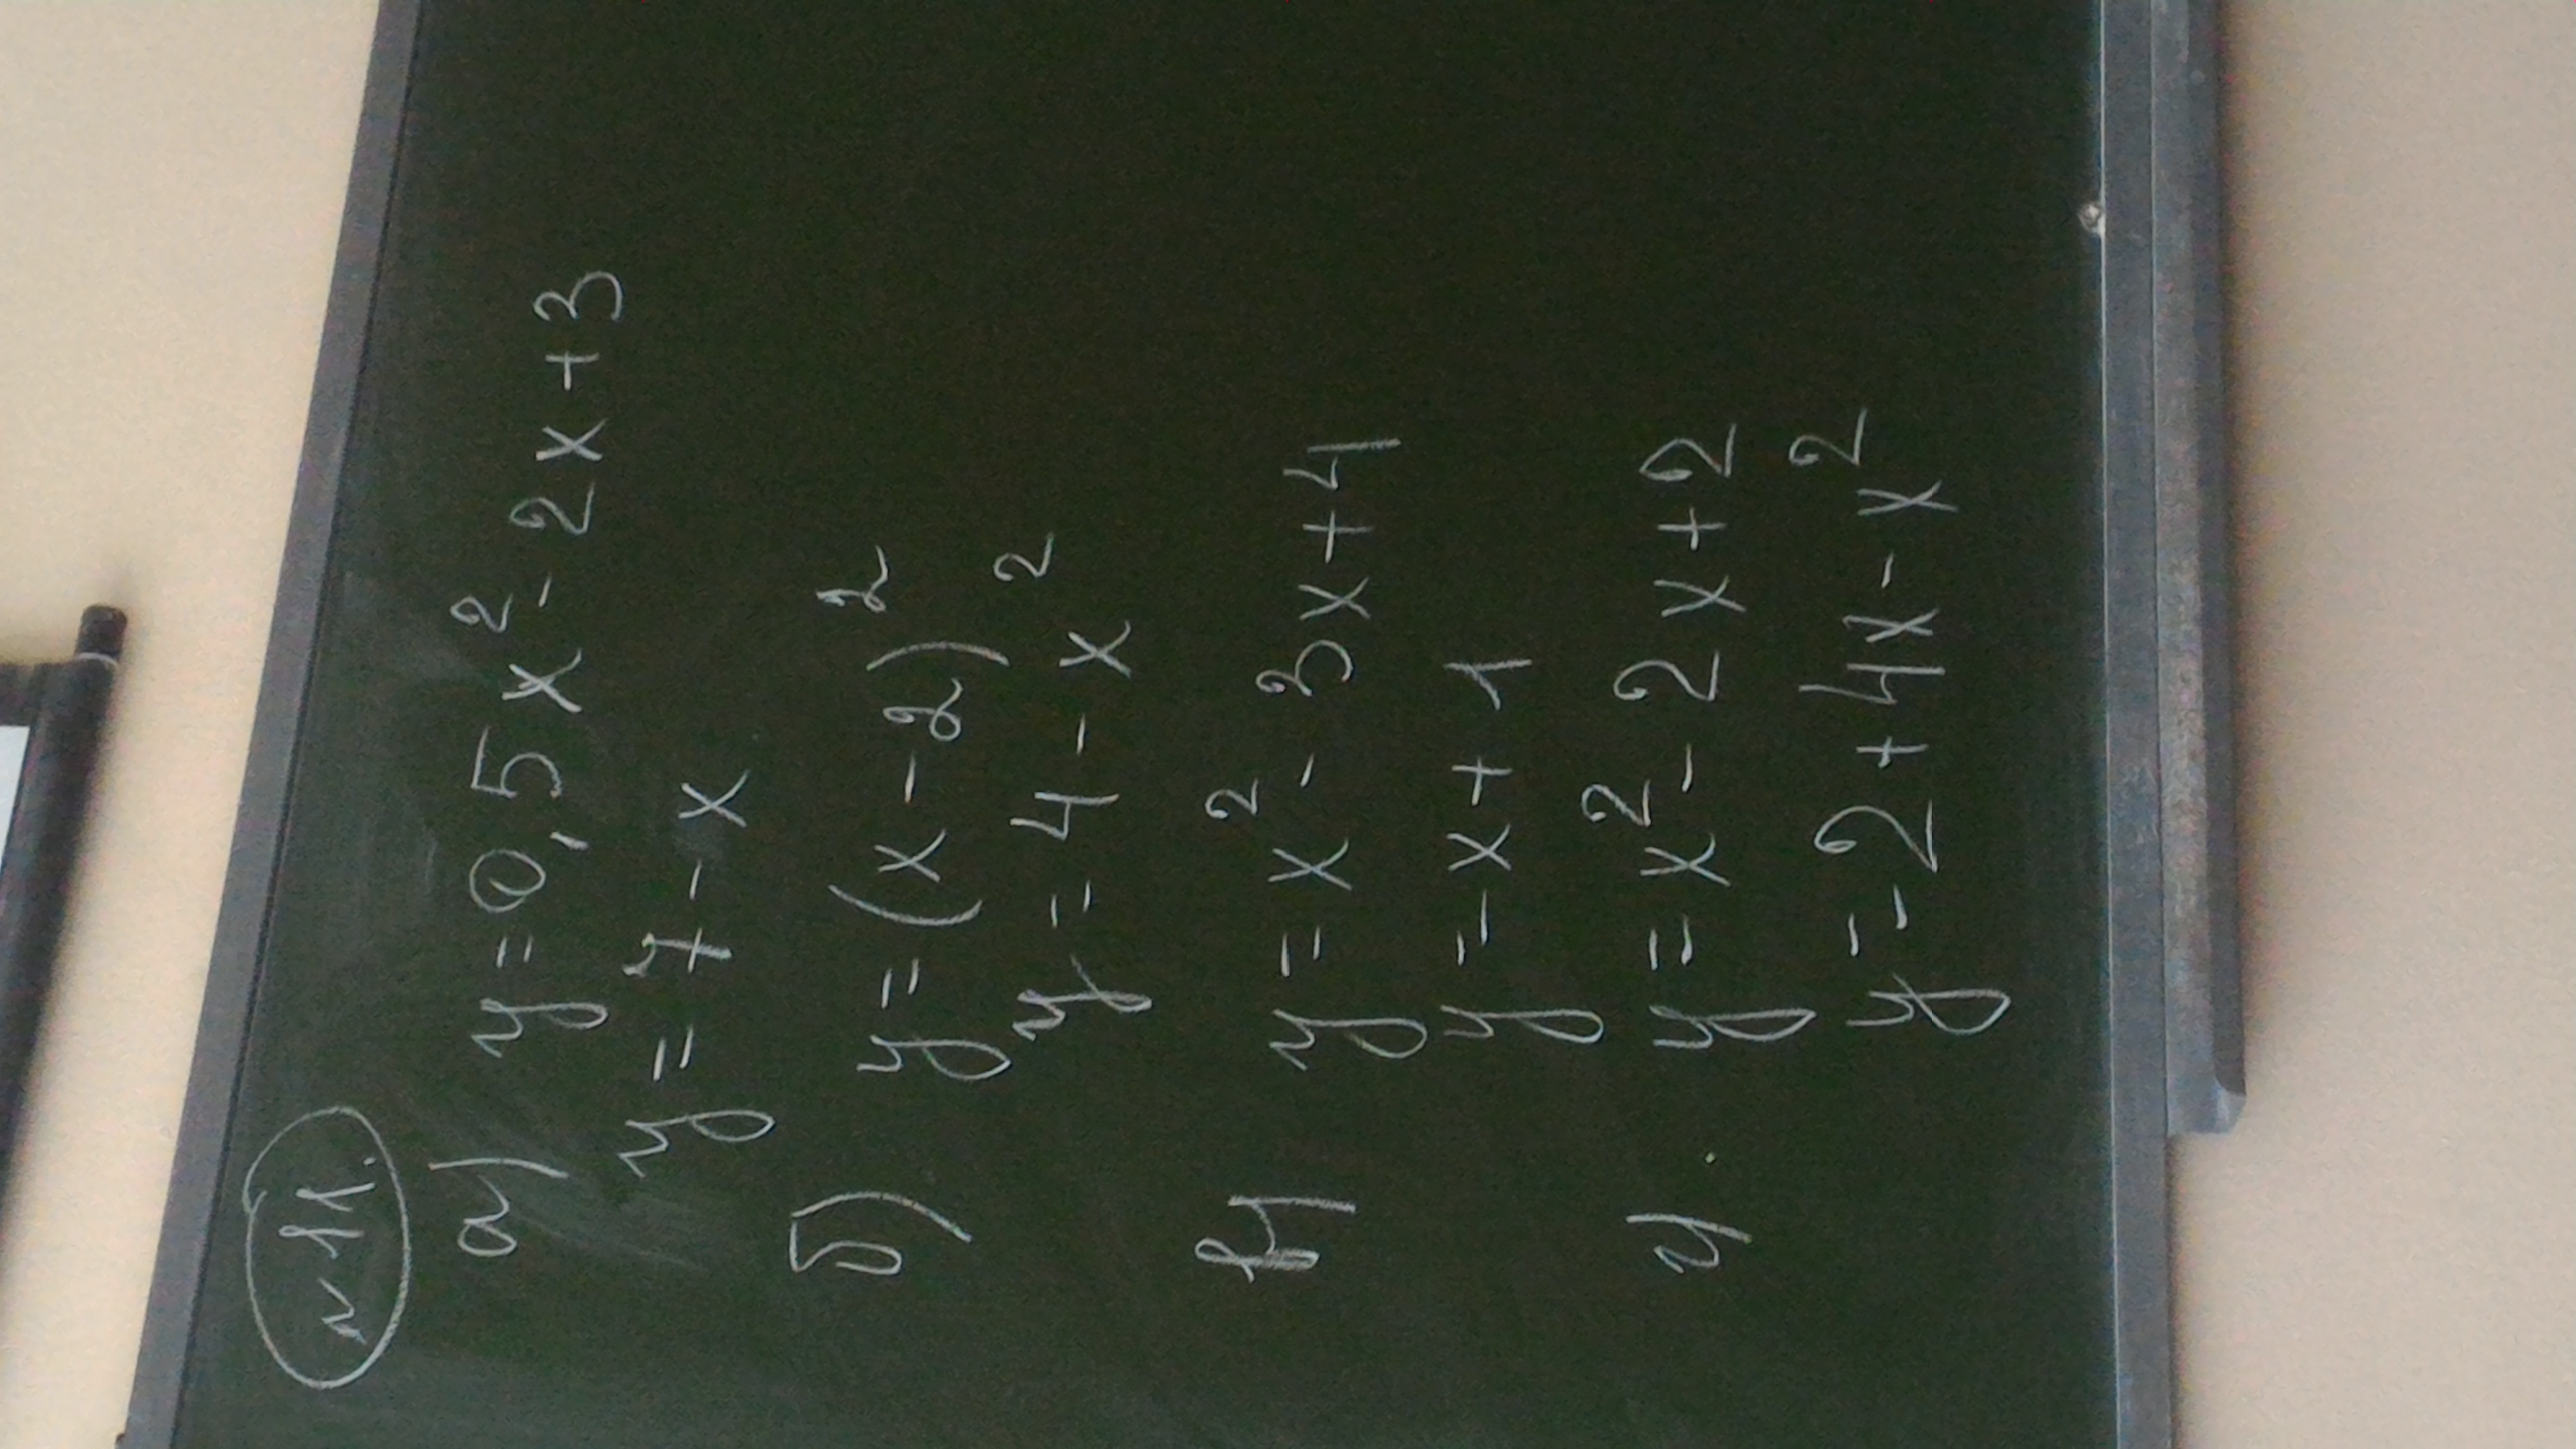 № 11.
а) y = 0,5x² - 2x + 3
y = 7 - x
б) y = (x - 2)²
y = 4 - x²
в) y = x² - 3x + 4
y = - x + 1
г) y = x² - 2x + 2
y = 2 + 4x - x²